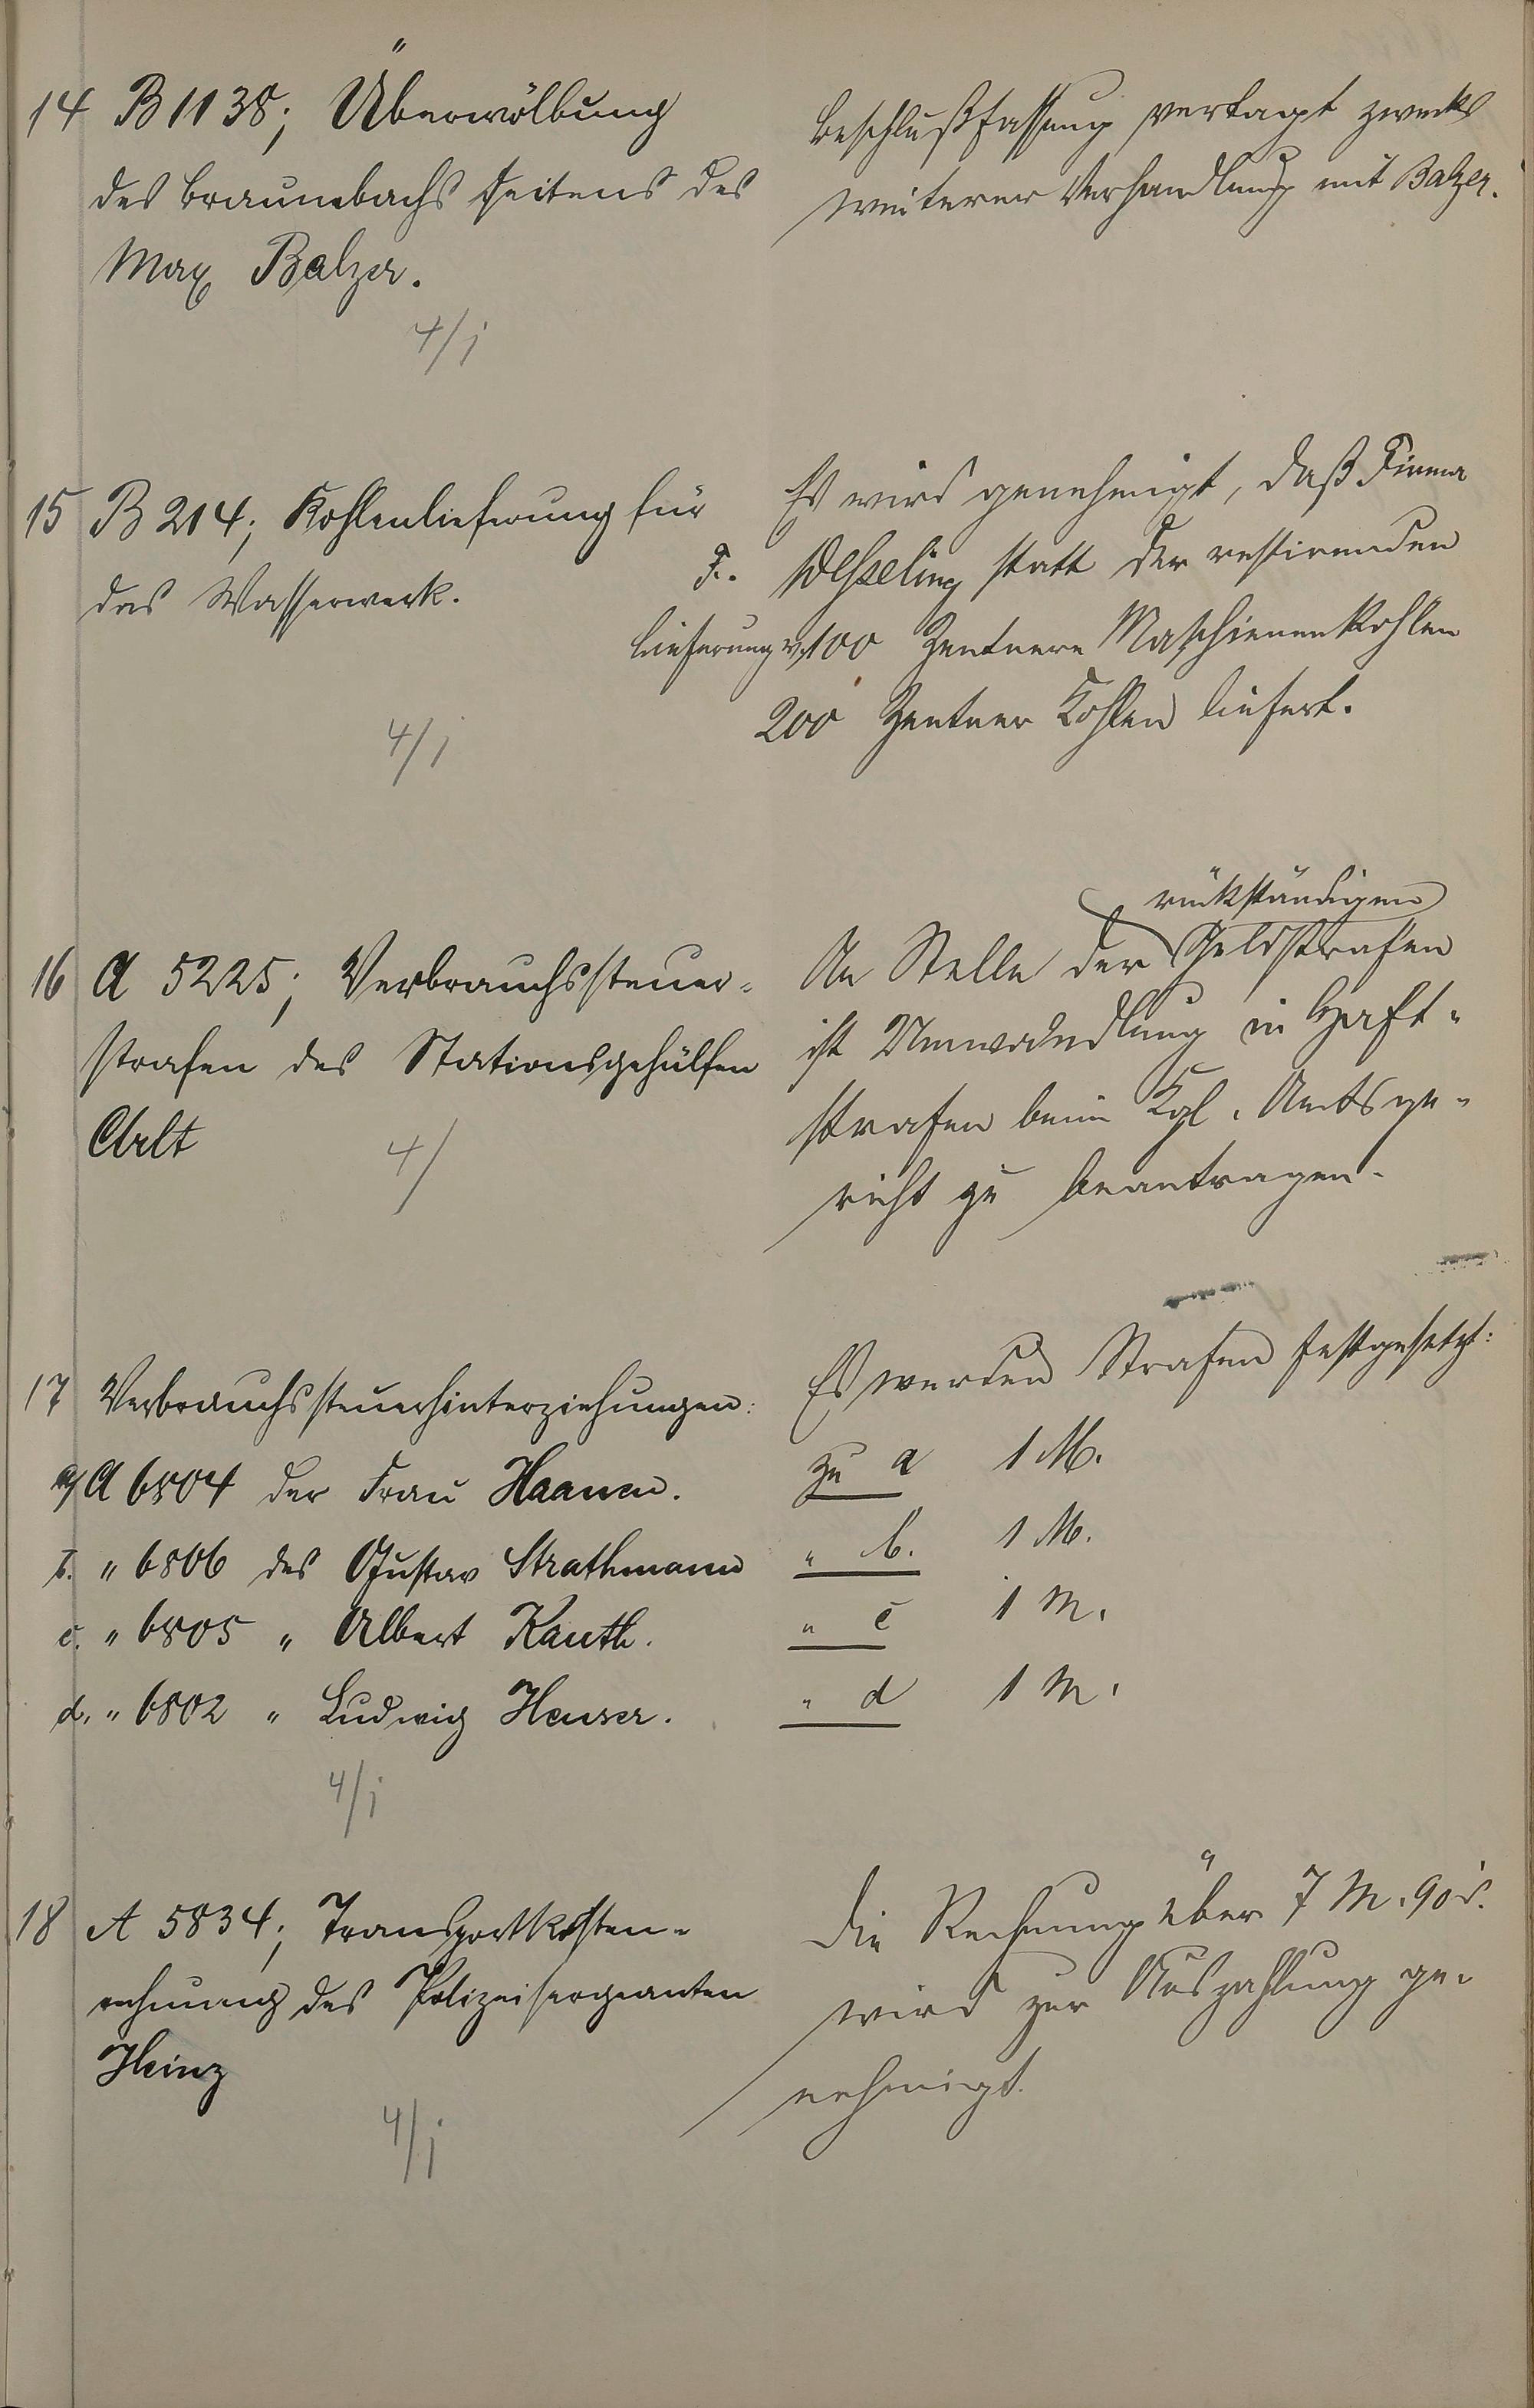 14 B 1138; Überwölbung
des Braunebachs seitens des
Max Balzer.
4/j
Beschlußfassung vertagt zwecks
weiterer Verhandlung mit Balzer.
15 B 214; Kohlenlieferung für
das Wasserwerk.
4/j
Es wird genehmigt, daß Firma
F. Wesseling statt der restirenden
Lieferung v. 100 Zentnern Maschienenkohlen
200 Zentner Kohlen liefert.
16 A 5225; Verbrauchssteuer-
strafen des Stationsgehülfen
Arlt
4/
rückständigen
An Stelle der Geldstrafen
ist Umwandlung in Haft-
strafen beim Kgl. Amtsge-
richt zu beantragen.
17 Verbrauchssteuerhinterziehungen:
a) A 6804 der Frau Haanen.
b. " 6806 des Gustav Strathmann
c. " 6805 " Albert Kauth.
d. " 6802 " Ludwig Heuser.
4/j
Es werden Strafen festgesetzt:
zu a 1 M.
" b. 1 M.
" c 1 M.
" d 1 M.
18 A 5834; Transportkosten-
rechnung des Polizeisergeanten
Heinz
4/j
Die Rechnung über 7 M. 90 d.
wird zur Auszahlung ge-
nehmigt.